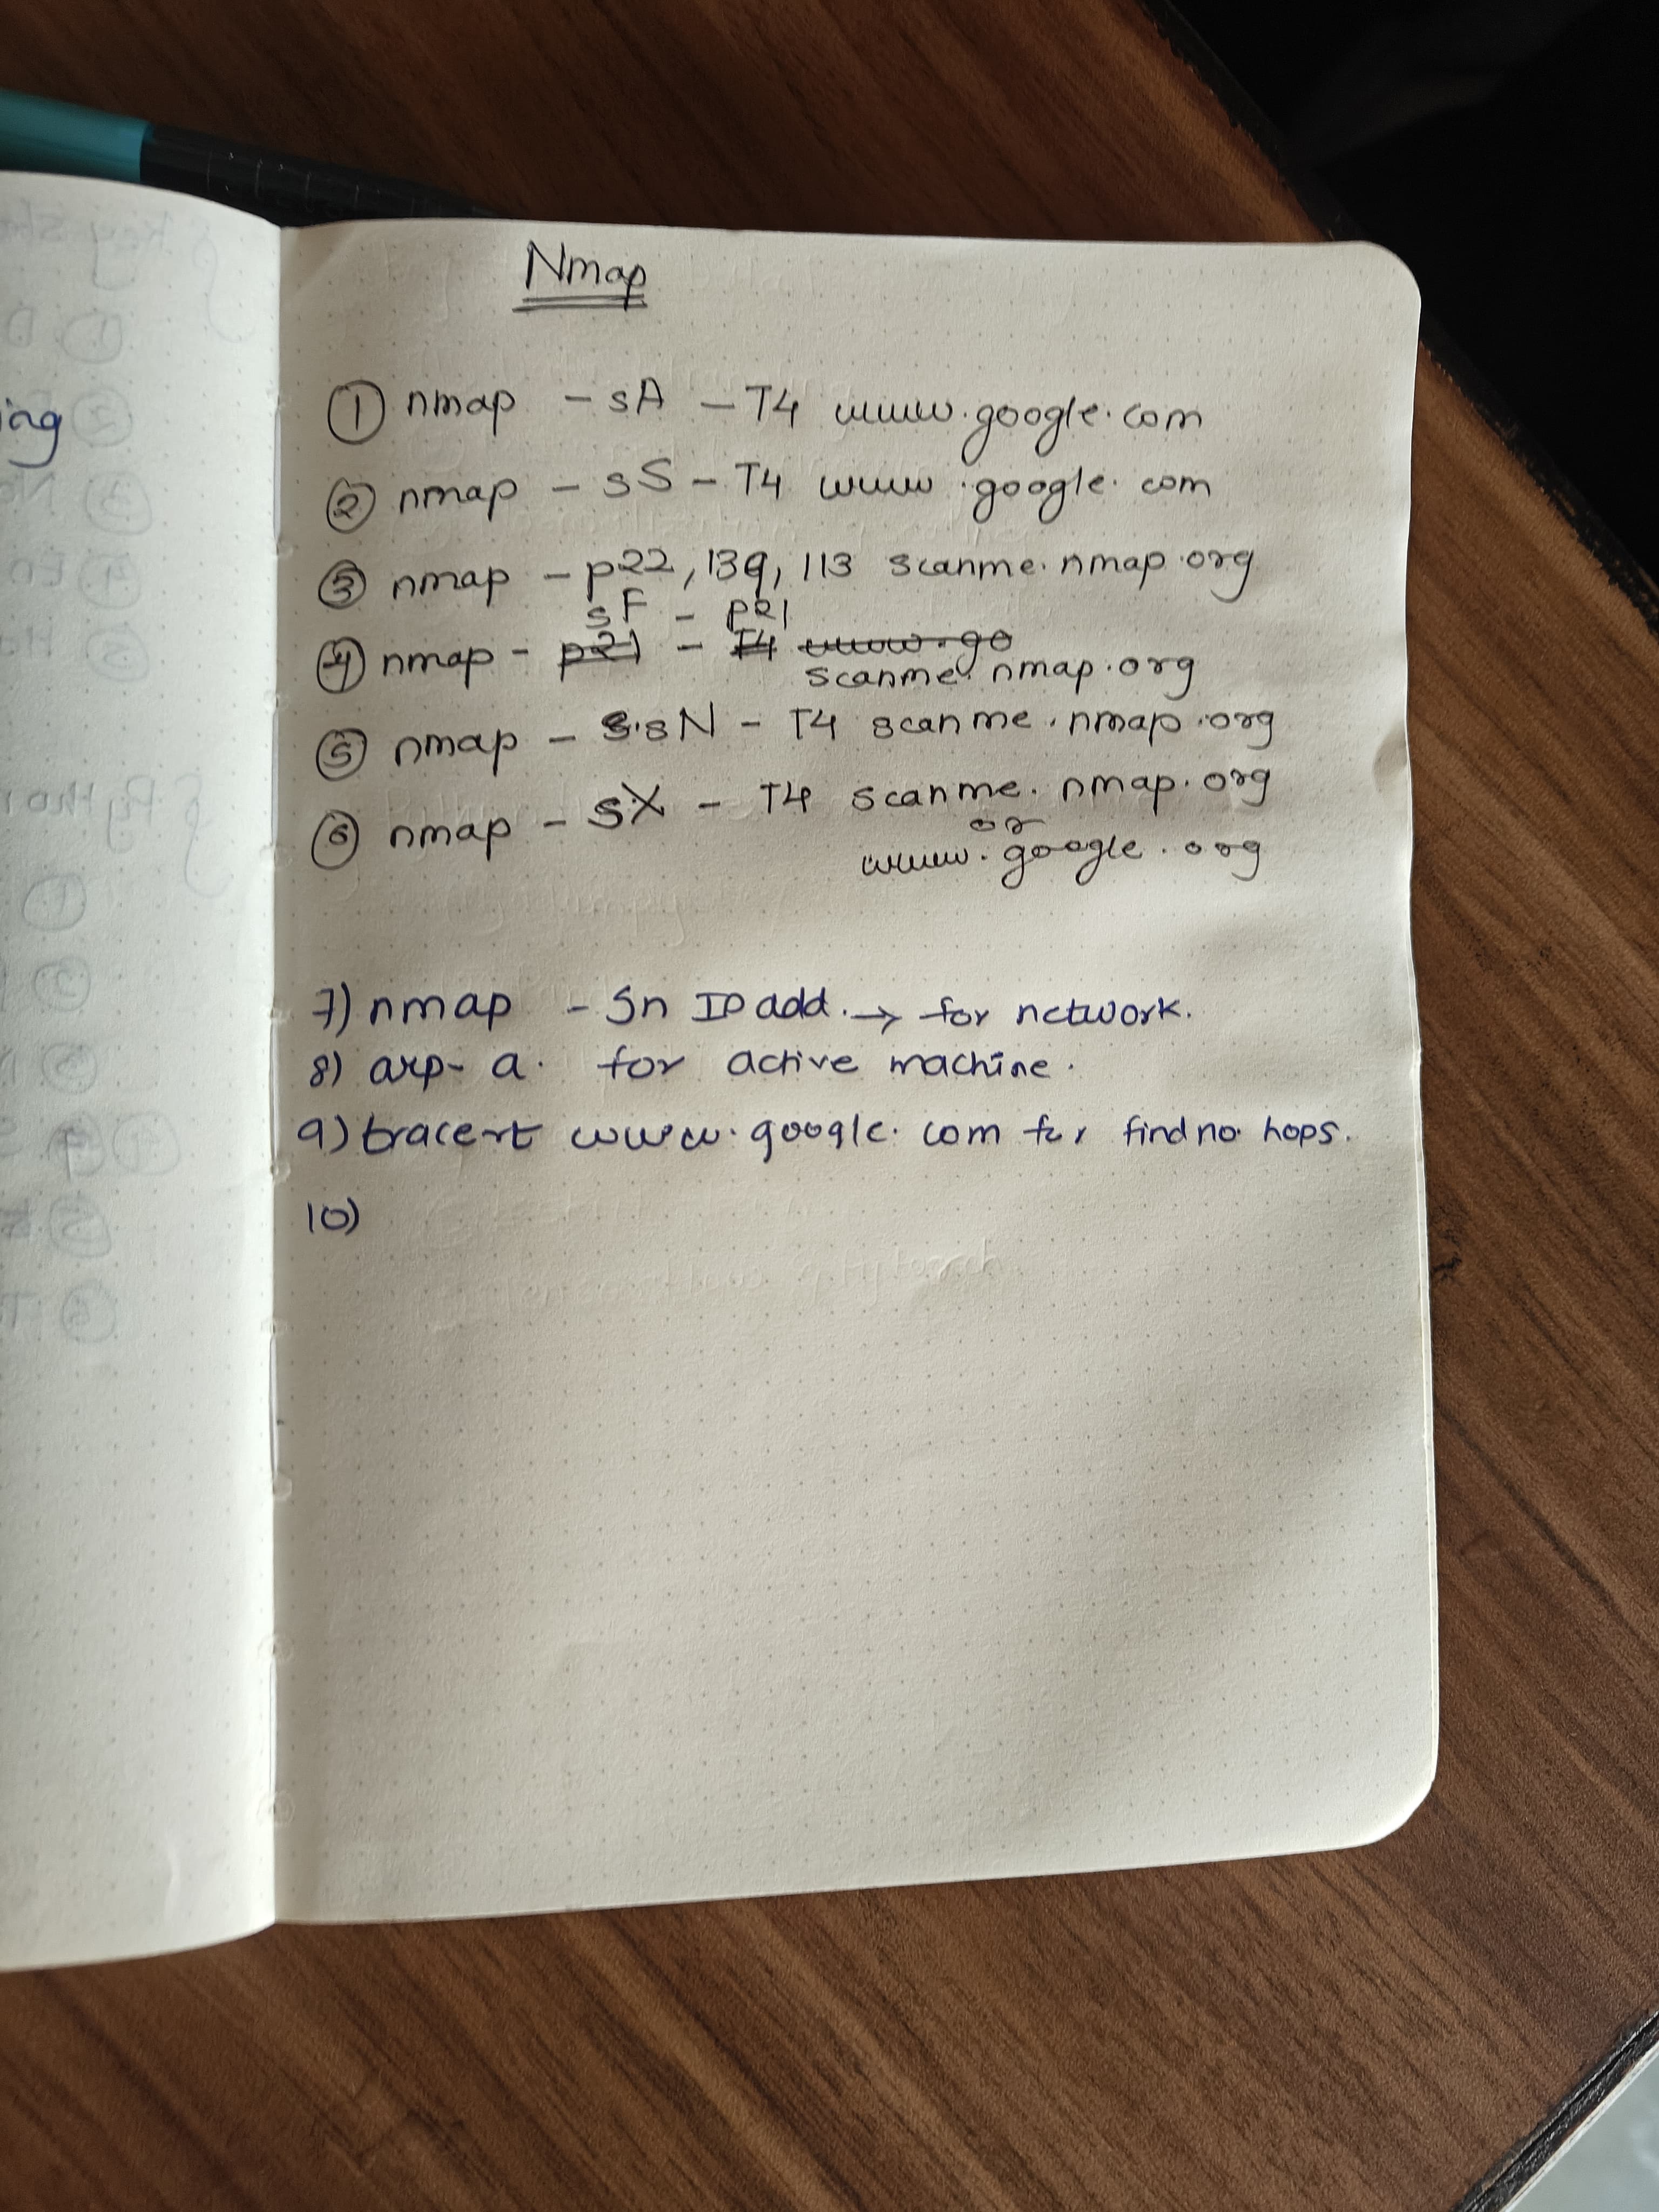 ing
Nmap
① nmap - sA - T4 www.google.com
② nmap - sS - T4 www.google.com
③ nmap - p22,139,113 scanme.nmap.org
sF - p21
④ nmap - p21 - T4 www.go
scanme.nmap.org
⑤ nmap - sN - T4 scanme.nmap.org
⑥ nmap - sX - T4 scanme.nmap.org
or
www.google.org
7) nmap - Sn IP add. → for network.
8) arp- a. for active machine.
9) tracert www.google.com for find no. hops.
10)